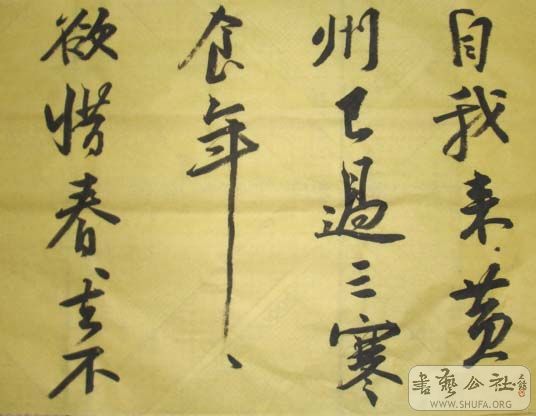 自我来黄
州已過三寒
食年、、
欲惜春、去不
書藝公社
WWW.SHUFA.ORG